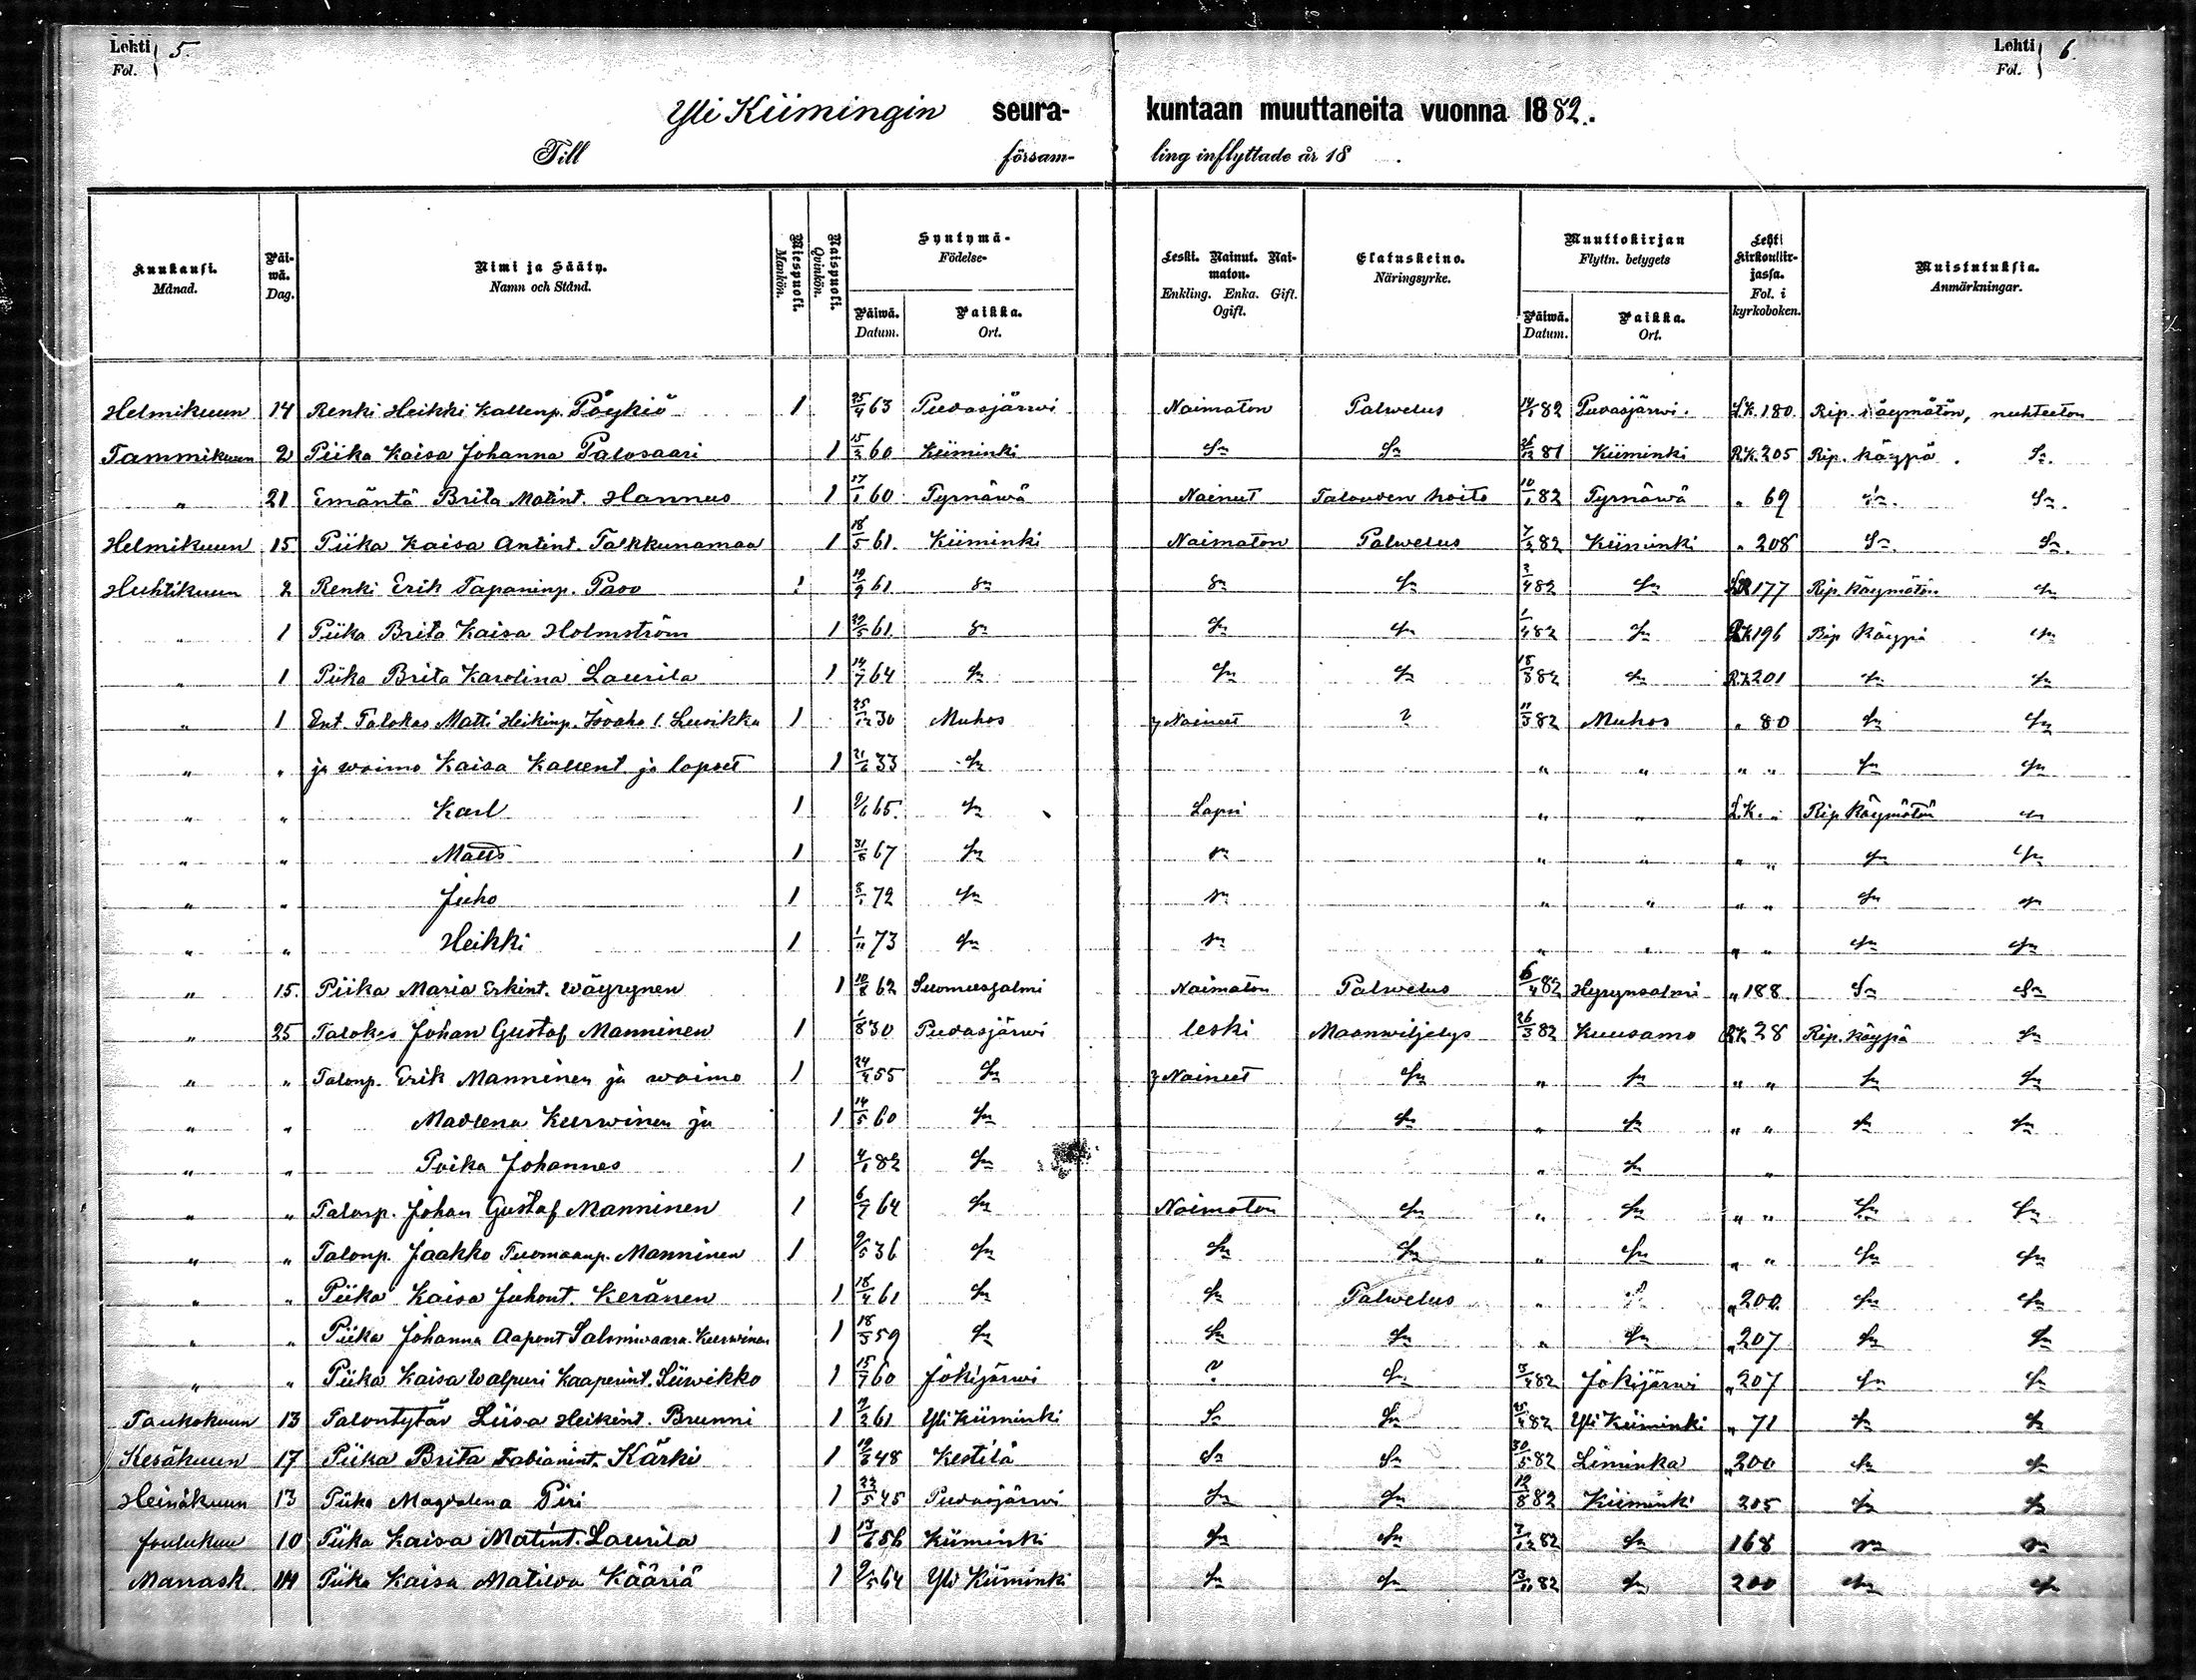 Lehti Fol. 5.
Lehti Fol. 6.
Yli Kiimingin seura- kuntaan muuttaneita vuonna 1882.
Till församling inflyttade år 18 .
Kuukausi. Månad.
Päiwä. Dag.
Nimi ja Sääty. Namn och Stånd.
Miespuoli. Mankön.
Naispuoli. Qvinkön.
Syntymä- Födelse-
Päiwä. Datum.
Paikka. Ort.
Leski. Nainut. Naimaton. Enkling. Enka. Gift. Ogift.
Elatuskeino. Näringsyrke.
Muuttokirjan Flyttn. betygets
Päiwä. Datum.
Paikka. Ort.
Lehti Kirkonkirjassa. Fol. i kyrkoboken.
Muistutuksia. Anmärkningar.
Helmikuun 14 Renki Heikki Kallenp. Pöykiö 1 25/4 63 Pudasjärwi Naimaton Palwelus 14/1 82 Pudasjärwi. L.K. 180. Rip. käymätön, nuhteeton
Tammikuun 2 Piika Kaisa Johanna Palosaari 1 15/3 60 Kiiminki Sn Sn 26/12 81 Kiiminki R.K. 205 Rip. käypä. Sn.
" 21 Emäntä Brita Matint. Hannus 1 17/1 60 Tyrnäwä Nainut Talouden hoito 10/1 82 Tyrnäwä " 69 Sn. Sn.
Helmikuun 15 Piika Kaisa Antint. Talkkunamaa 1 18/5 61. Kiiminki Naimaton Palwelus 7/2 82 Kiiminki " 208 Sn. Sn.
Huhtikuun 2 Renki Erik Tapaninp. Paso 1 19/9 61 Sn Sn Sn 3/4 82 Sn 177 Rip. käymätön Sn
" 1 Piika Brita Kaisa Holmström 1 29/5 61 Sn Sn Sn 1/4 82 Sn R.K. 196 Rip käypä Sn
" 1 Piika Brita Karolina Laurila 1 14/7 64 Sn Sn Sn 18/3 82 Sn R.K. 201 Sn Sn
" 1 Ent. Talokas Matti Heikinp. 1 25/12 30 Muhos Nainut ? 11/3 82 Muhos " 80 Sn Sn
" " ja waimo Kaisa Kallent. ja lapset 1 21/6 33 Sn " " " " Sn Sn
" " Karl 1 9/6 65. Sn Lapsi " " L.K. " Rip käymätön Sn
" " Matts 1 31/8 67 Sn Sn " " " " Sn Sn
" " Juho 1 8/1 72 Sn Sn " " " " Sn Sn
" " Heikki 1 1/11 73 Sn Sn " " " " Sn Sn
" 15. Piika Maria Erkint. Wäyrynen 1 10/8 62 Suomussalmi Naimaton Palwelus 6/4 82 Hyrynsalmi " 188 Sn Sn
" 25 Talokas Johan Gustaf Manninen 1 1/8 30 Pudasjärwi leski Maanwiljelys 26/3 82 Kuusamo R.K. 28 Rip. käypä Sn
" " Talonp. Erik Manninen ja waimo 1 24/4 55 Sn Nainut Sn " Sn " " Sn Sn
" " Madlena Kurwinen ja 1 14/5 60 Sn Sn " Sn " " Sn Sn
" " Poika Johannes 1 4/1 82 Sn " Sn "
" " Talonp. Johan Gustaf Manninen 1 6/7 64 Sn Naimaton Sn " Sn " " Sn Sn
" " Talonp. Jaakko Tuomaanp. Manninen 1 9/5 36 Sn Sn Sn " Sn " " Sn Sn
" " Piika Kaisa Juhont. Keränen 1 18/4 61 Sn Sn Palwelus " Sn " 200 Sn Sn
" " Piika Johanna Aapont Salmiwaara Kurwinen 1 18/3 59 Sn Sn Sn " Sn " 207 Sn Sn
" " Piika Kaisa Walpuri Kaaperint. Siiwikko 1 15/7 60 Jokijärwi ? Sn 3/4 82 Jokijärwi " 207 Sn Sn
Toukokuun 13 Talontytär Liisa Heikint. Brunni 1 9/2 61 Yli Kiiminki Sn Sn 25/4 82 Yli Kiiminki " 71 Sn Sn
Kesäkuun 17 Piika Brita Fabianint. Kärki 1 19/3 48 Kestilä Sn Sn 30/5 82 Liminka " 200 Sn Sn
Heinäkuun 13 Piika Magdalena Piri 1 22/5 45 Pudasjärwi Sn Sn 12/8 82 Kiiminki 205 Sn Sn
Joulukuu 10 Piika Kaisa Matint. Laurila 1 13/6 56 Kiiminki Sn Sn 7/12 82 Sn 168 Sn Sn
Marrask. 14 Piika Kaisa Matilda Kääriä 1 9/5 64 Yli Kiiminki Sn Sn 13/11 82 Sn 200 Sn Sn